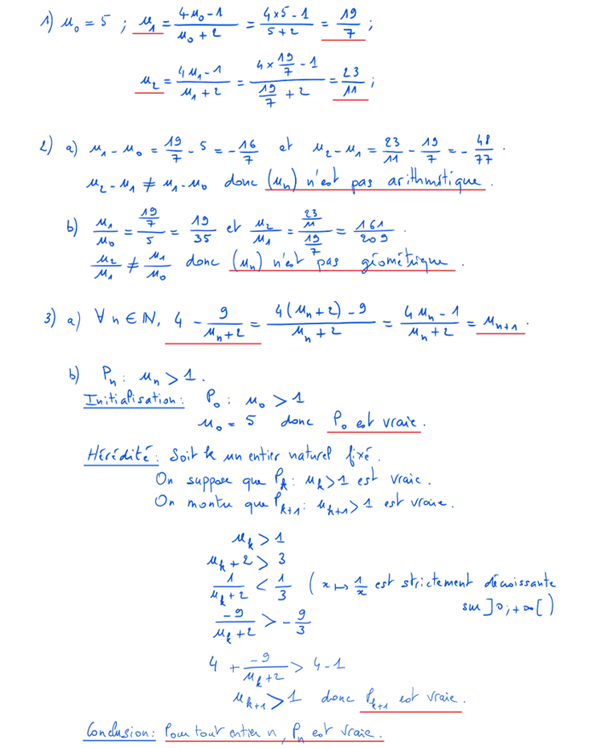 1) u₀ = 5 ; u₁ = (4u₀ - 1)/(u₀ + 2) = (4×5 - 1)/(5 + 2) = 19/7 ;
u₂ = (4u₁ - 1)/(u₁ + 2) = (4 × 19/7 - 1)/(19/7 + 2) = 23/11 ;
2) a) u₁ - u₀ = 19/7 - 5 = -16/7 et u₂ - u₁ = 23/11 - 19/7 = -48/77 .
u₂ - u₁ ≠ u₁ - u₀ donc (uₙ) n'est pas arithmétique .
b) u₁/u₀ = (19/7)/5 = 19/35 et u₂/u₁ = (23/11)/(19/7) = 161/209 .
u₂/u₁ ≠ u₁/u₀ donc (uₙ) n'est pas géométrique .
3) a) ∀ n ∈ ℕ, 4 - 9/(uₙ + 2) = (4(uₙ + 2) - 9)/(uₙ + 2) = (4uₙ - 1)/(uₙ + 2) = uₙ₊₁ .
b) Pₙ : uₙ > 1 .
Initialisation : P₀ : u₀ > 1
u₀ = 5 donc P₀ est vraie .
Hérédité : Soit k un entier naturel fixé .
On suppose que Pₖ : uₖ > 1 est vraie .
On montre que Pₖ₊₁ : uₖ₊₁ > 1 est vraie .
uₖ > 1
uₖ + 2 > 3
1/(uₖ + 2) < 1/3 ( x ↦ 1/x est strictement décroissante
sur ]0 ; +∞[ )
-9/(uₖ + 2) > -9/3
4 + -9/(uₖ + 2) > 4 - 1
uₖ₊₁ > 1 donc Pₖ₊₁ est vraie .
Conclusion : Pour tout entier n , Pₙ est vraie .